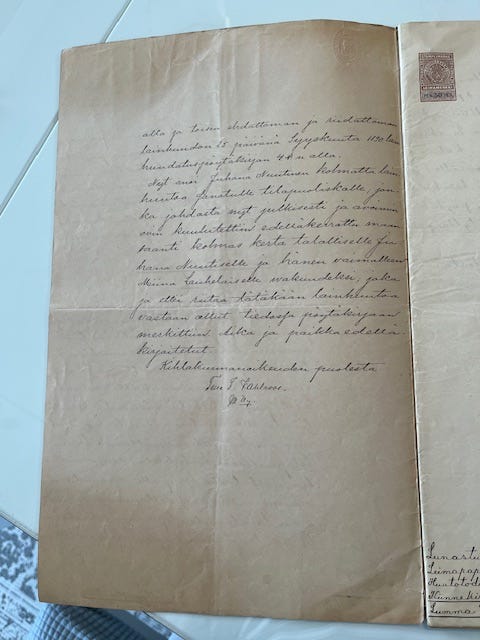 alla ja toisen ehdattoman ja riidattoman
lainkundon 25 päivänä Syyskuuta 1890 lain
huudatuspöytäkirjan 4 §:n alla.
Nyt anoi Juhana Nuutisen kolmatta lain
huutoa sanatulle tilapuoliskolle, jon
ka johdosta nyt julkisesti ja avoimin
ovin kuulutettiin edelläkerrottu maan
saanti kolmas kerta talolliselle Ju
hana Nuutiselle ja hänen vaimolleen
Minna Laukelaiselle wakuudeksi, joka
ja ettei riitaa tätäkään lainhuutoa
vastaan ollut, tiedoksi pöytäkirjaan
merkittiin. Aika ja paikka edellä
kirjoitetut.
Kihlakunnanoikeuden puolesta
Lunastu
Leimapap
Lumma